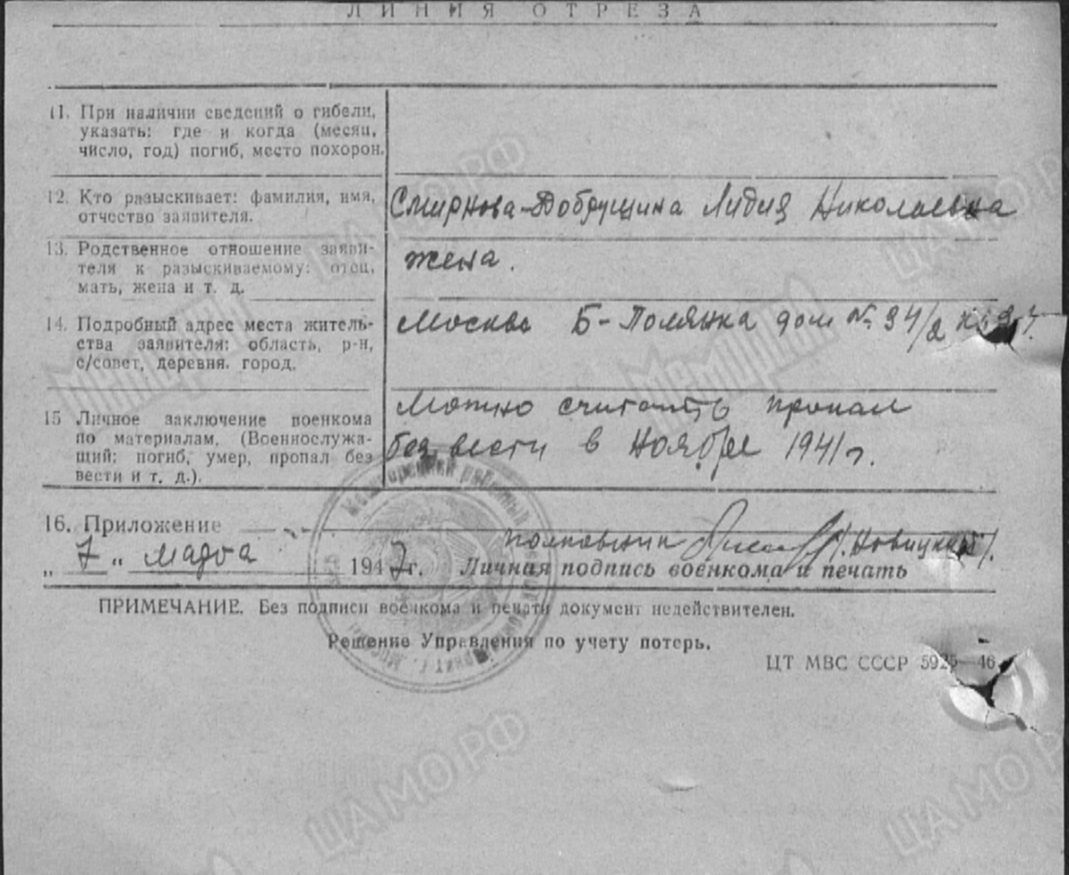 ЛИНИЯ ОТРЕЗА
11. При наличии сведений о гибели,
указать: где и когда (месяц,
число, год) погиб, место похорон.
12. Кто разыскивает: фамилия, имя,
отчество заявителя.
Смирнова-Добрущина Лидия Николаевна
13. Родственное отношение заяви-
теля к разыскиваемому: отец,
мать, жена и т. д.
жена.
14. Подробный адрес места житель-
ства заявителя: область, р-н,
с/совет, деревня. город.
Москва Б-Полянка дом № 34/2
15 Личное заключение военкома
по материалам, (Военнослужа-
щий: погиб, умер, пропал без
вести и т. д.).
Можно считать пропал
без вести в Ноябре 1941 г.
16. Приложение
полковник /Новицкий/.
„ 7 " марта 1947 г. Личная подпись военкома и печать
ПРИМЕЧАНИЕ. Без подписи военкома и печати документ недействителен.
Решение Управления по учету потерь.
ЦТ МВС СССР 5925—46
Мемориал
ЦАМО РФ